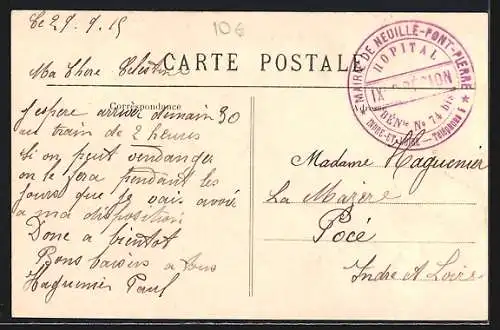 Le 29. 9. 15
10€
CARTE POSTALE
MAIRIE DE NEUILLÉ-PONT-PIERRE
HOPITAL
IXe RÉGION
BÉNle No 74 bis
INDRE-ET-LOIRE — Téléphone
Ma Chere Celestine
Correspondance
J'espere arriver demain 30
au train de 2 heures
Si on peut vendanger
on le fera pendant les
jours que je vais avoir
a ma disposition
Donc a bientot
Bons baisers a tous
Haguenier Paul
Adresse
Madame Haguenier
La Mazere
Pocé
Indre et Loire